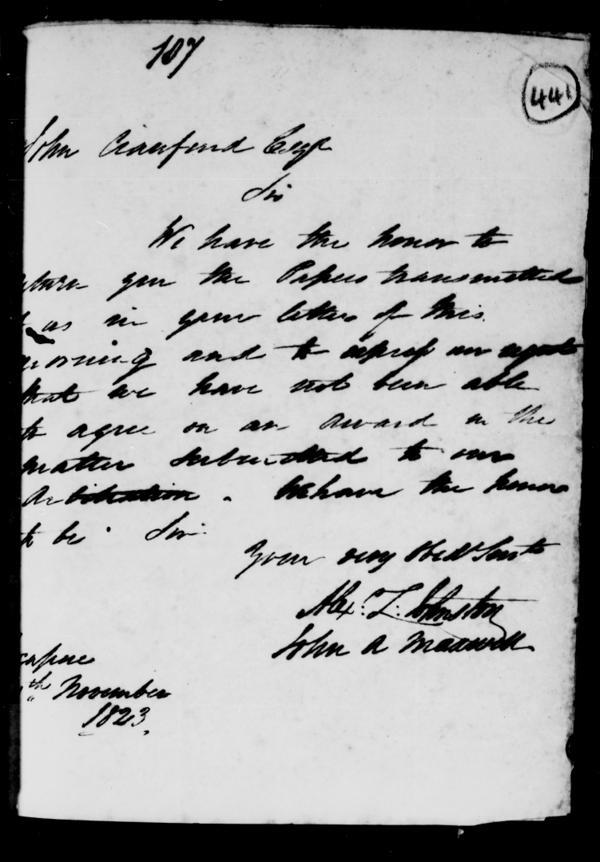 107
441
John Crawfurd Esqr
Sir
We have the honor to
return you the Papers transmitted
as in your letter of this
morning and to express our regret
that we have not been able
to agree on an award in the
matter submitted to our
Arbitration. We have the honor
to be Sir
Your very Obedt Servts
Alex: L: Johnston
John A Maxwell
capore
th November
1823.